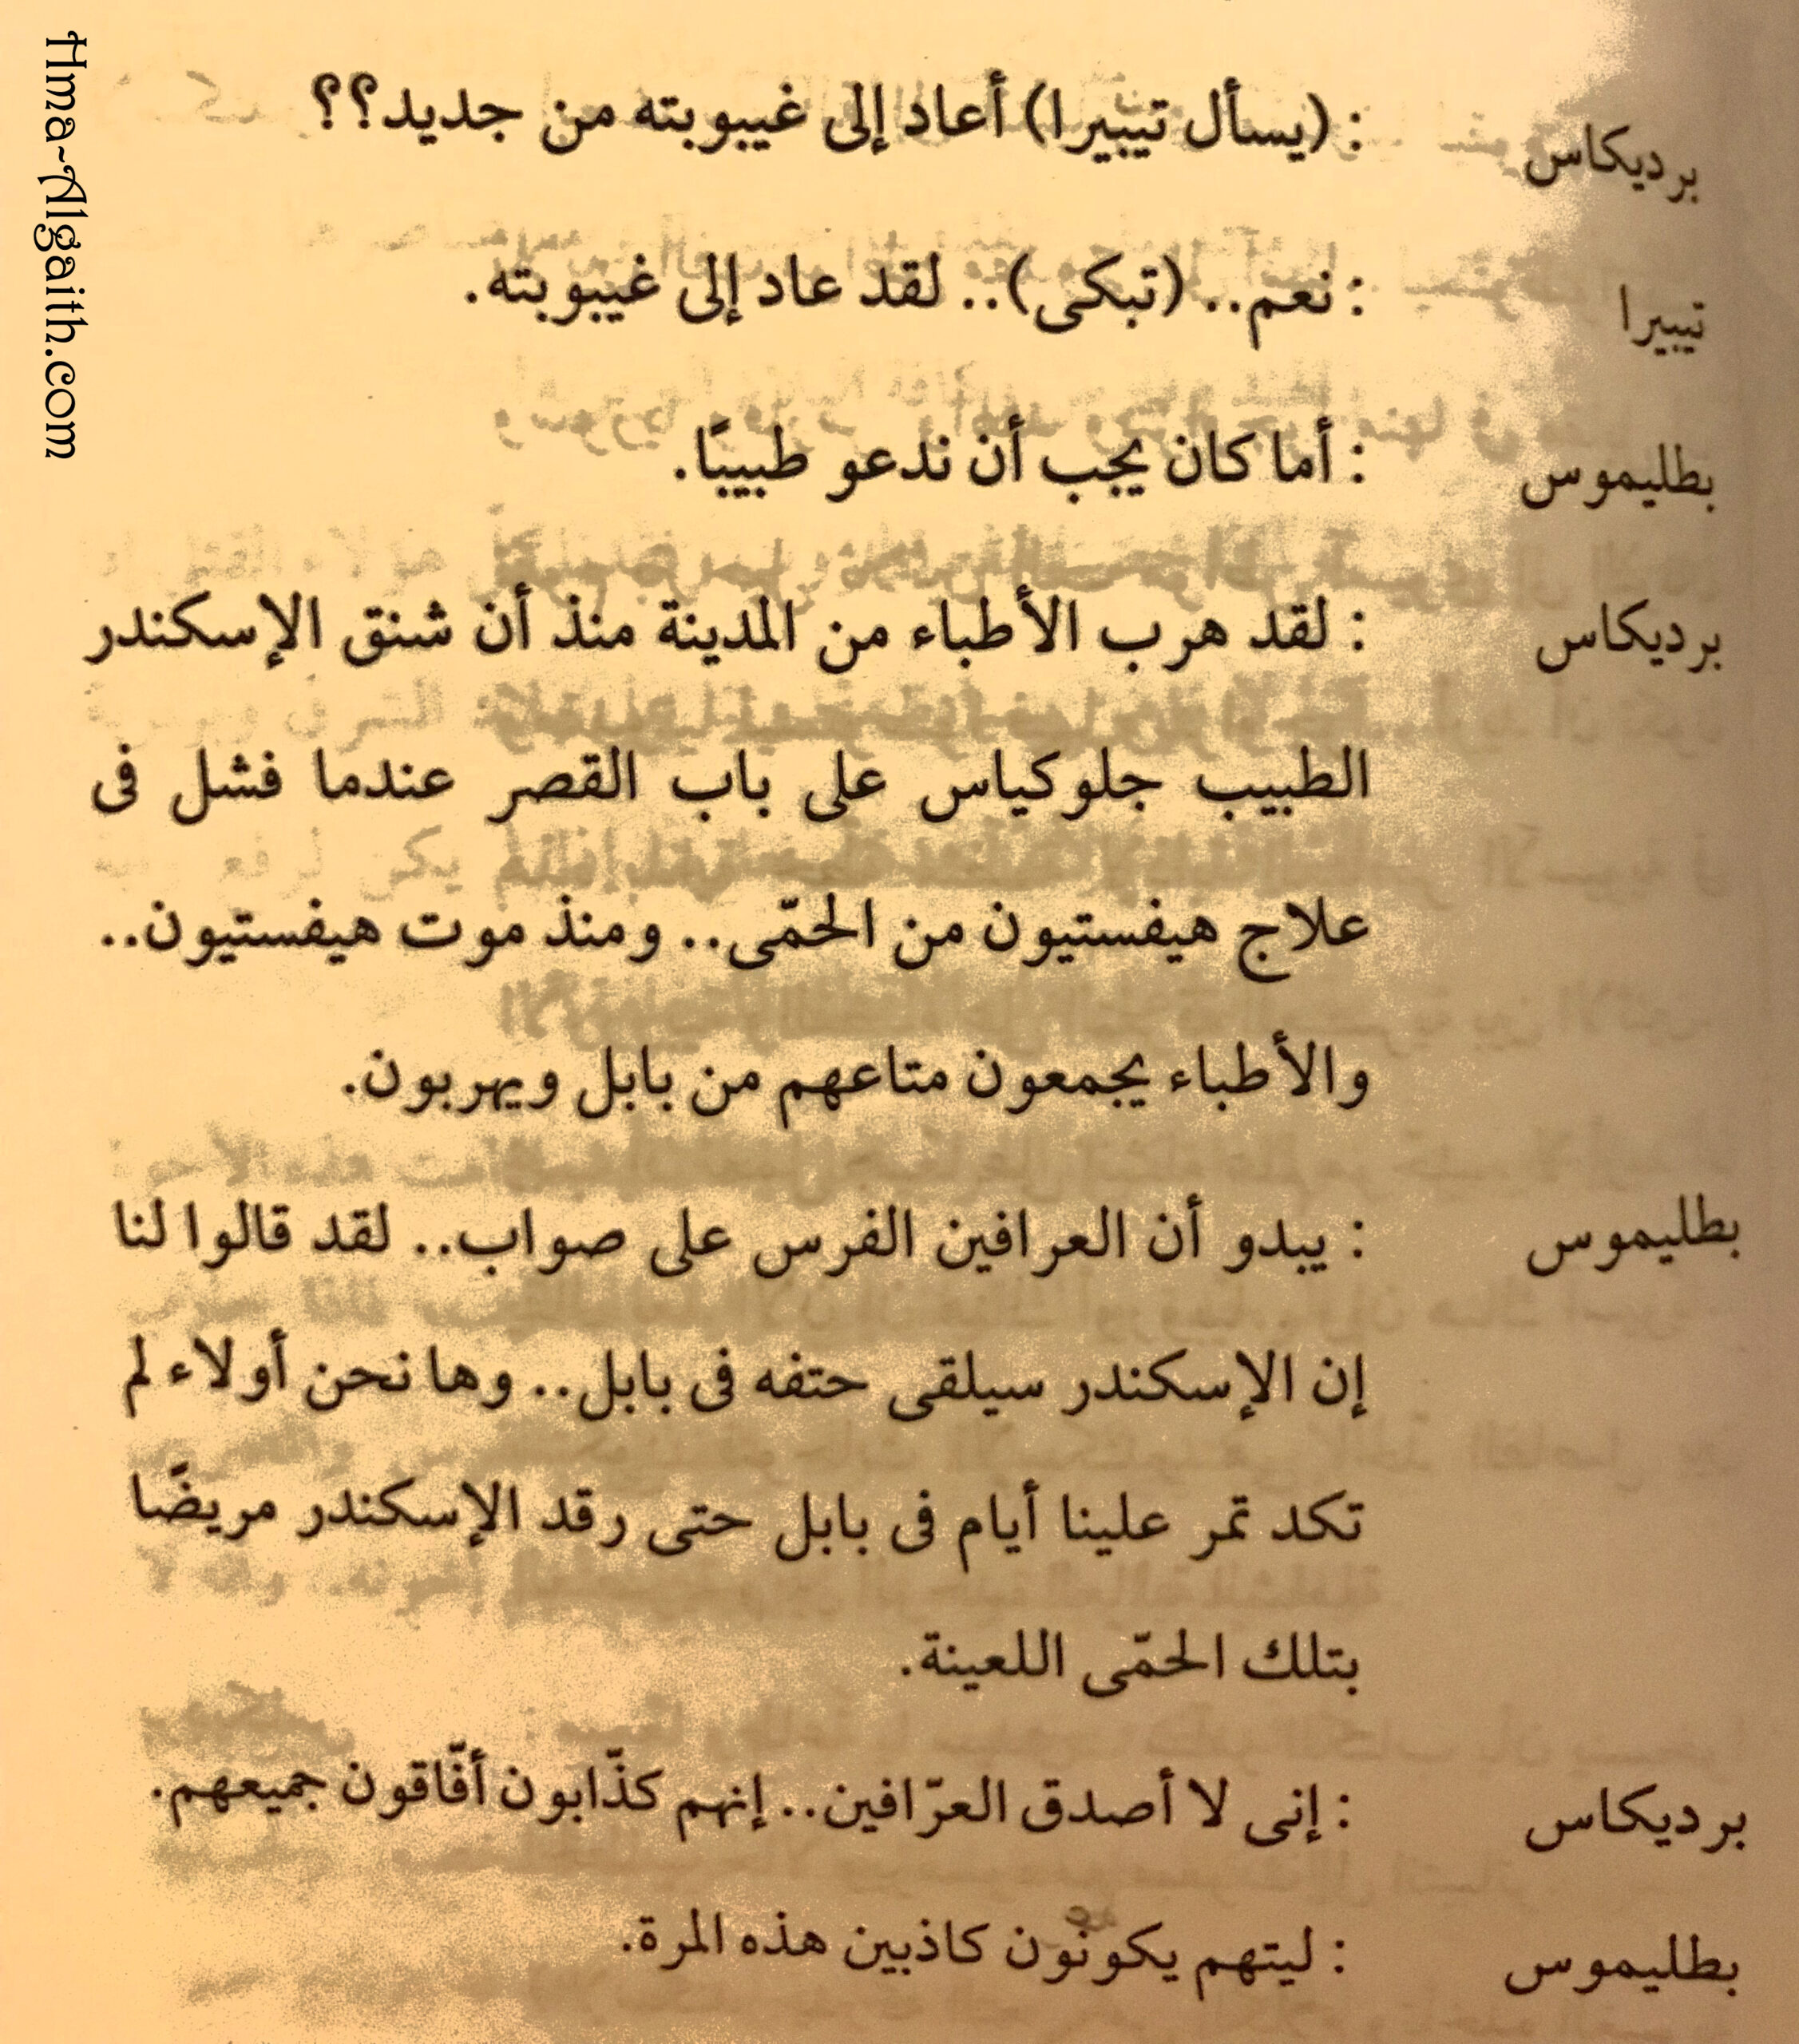 برديكاس : (يسأل تيبيرا) أعاد إلى غيبوبته من جديد؟؟
تيبيرا : نعم.. (تبكى).. لقد عاد إلى غيبوبته.
بطليموس : أما كان يجب أن ندعو طبيبًا.
برديكاس : لقد هرب الأطباء من المدينة منذ أن شنق الإسكندر
الطبيب جلوكياس على باب القصر عندما فشل فى
علاج هيفستيون من الحمّى.. ومنذ موت هيفستيون..
والأطباء يجمعون متاعهم من بابل ويهربون.
بطليموس : يبدو أن العرافين الفرس على صواب.. لقد قالوا لنا
إن الإسكندر سيلقى حتفه فى بابل.. وها نحن أولاء لم
تكد تمر علينا أيام فى بابل حتى رقد الإسكندر مريضًا
بتلك الحمّى اللعينة.
برديكاس : إنى لا أصدق العرّافين.. إنهم كذّابون أفّاقون جميعهم.
بطليموس : ليتهم يكونون كاذبين هذه المرة.
Hma~Algaith.com